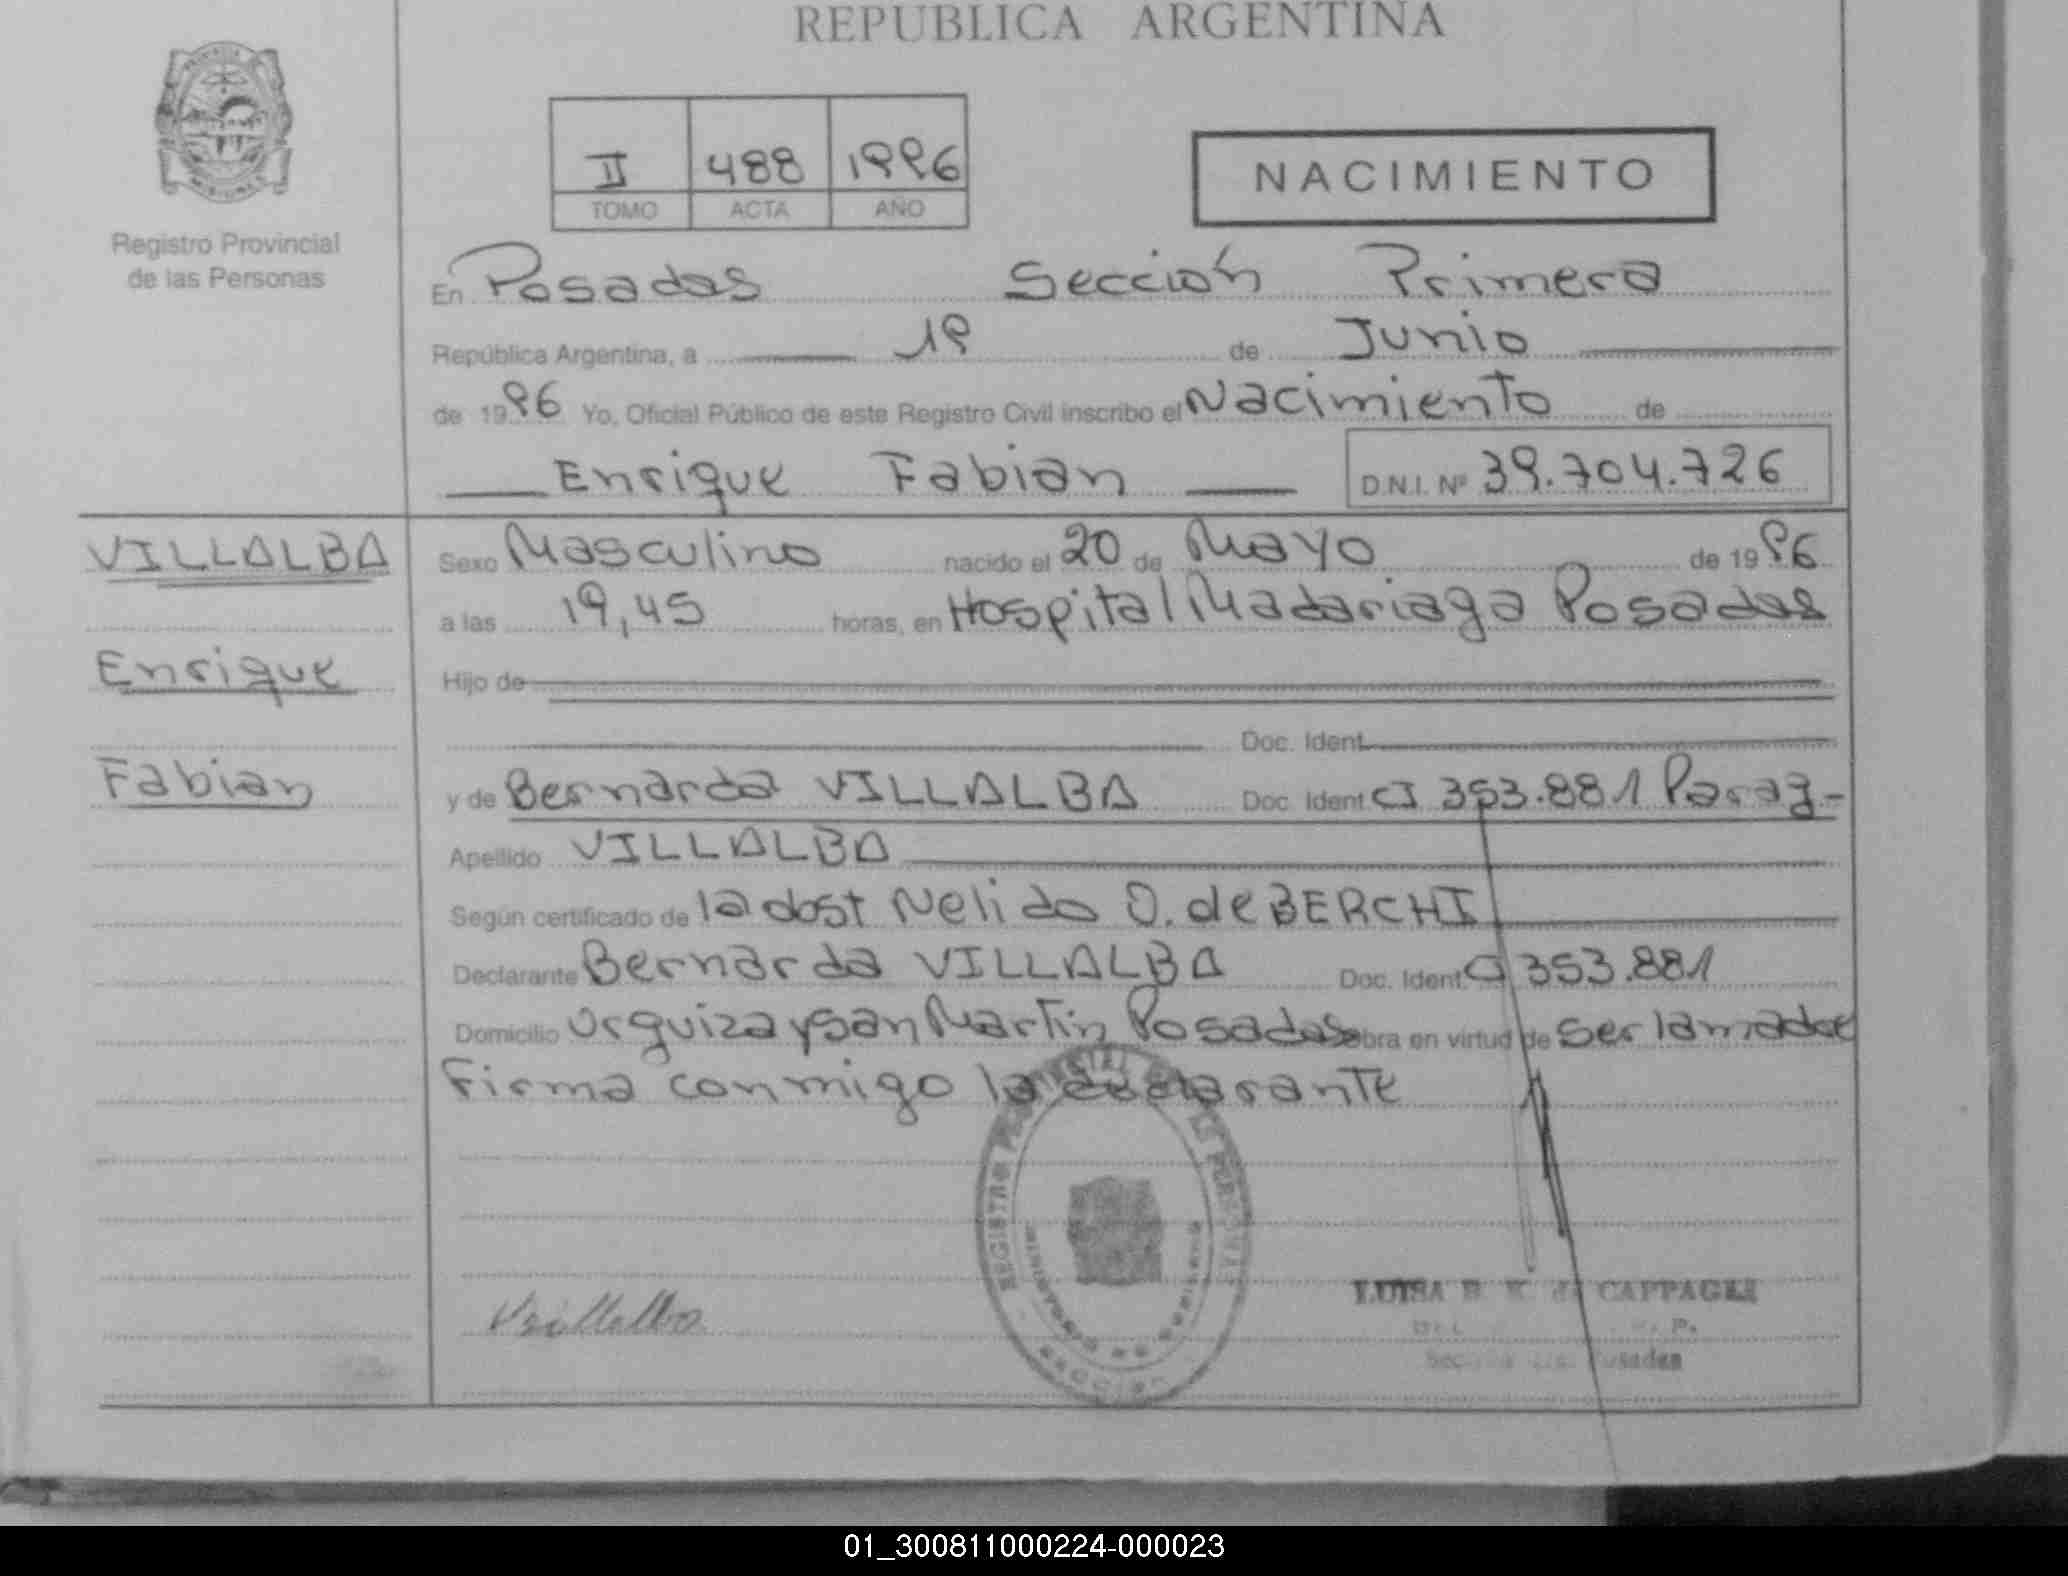 REPUBLICA ARGENTINA
PROVINCIA
MISIONES
Registro Provincial
de las Personas
II 488 1996
TOMO ACTA AÑO
NACIMIENTO
En Posadas Sección Primera
República Argentina, a 19 de Junio
de 1996 Yo, Oficial Público de este Registro Civil inscribo el Nacimiento de
Enrique Fabian D.N.I. Nº 39.704.726
VILLALBA
Enrique
Fabian
Sexo Masculino nacido el 20 de Mayo de 1996
a las 19,45 horas, en Hospital Madariaga Posadas
Hijo de
Doc. Ident.
y de Bernarda VILLALBA Doc. Ident CI 353.881 Parag-
Apellido VILLALBA
Según certificado de la obst Nelida O. de BERCHI
Declarante Bernarda VILLALBA Doc. Ident. CI 353.881
Domicilio Urquiza y San Martin Posadas obra en virtud de ser la madre
Firma conmigo la declarante
REGISTRO PROVINCIAL DE LAS PERSONAS
Villalba
LUISA B. K. de CAPPAGLI
Posadas
01_300811000224-000023